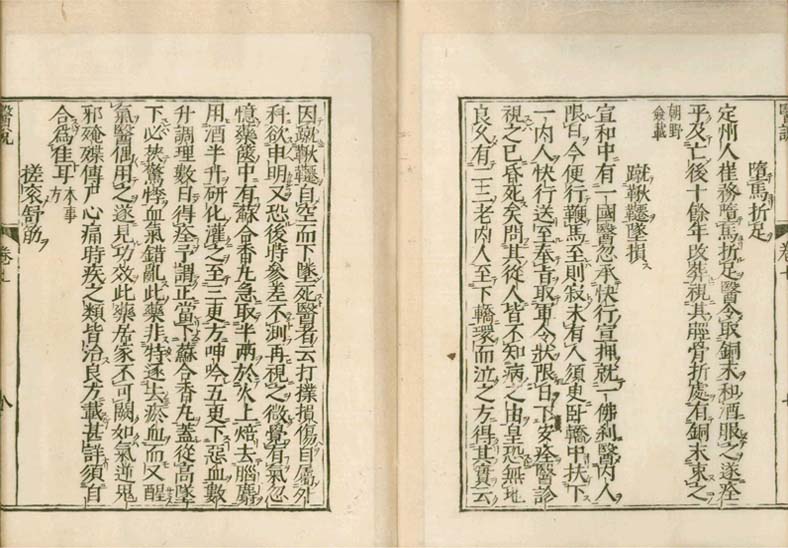 醫說 卷七 七
墮馬折足
定州人崔務墮馬折足醫令取銅末和酒服之遂痊
平及亡後十餘年改葬視其脛骨折處有銅末束之
朝野僉載
蹴鞦韆墜損
宣和中有一國醫忽承快行宣押就一佛刹醫内人
限日今便行鞭馬至則寂未有人須更卧轎中扶下
一内人快行送至奉旨取軍令狀限日下安痊醫診
視之已昏死矣問其從人皆不知病之由皇恐無地
良久有二三老内人至下轎環而泣之方得其實云
因蹴鞦韆自空而下墜死醫者云打撲損傷自屬外
科欲申明又恐後時參差不測再視之微覺有氣忽
憶藥篋中有蘇合香丸急取半兩於火上焙去腦麝
用酒半升研化灌之至三更方呻吟五更下惡血數
升調理數日得痊予謂正當下蘇合香丸蓋從高墜
下必挾驚悸血氣錯亂此藥非特逐去瘀血而又醒
氣醫偶用之遂見功效此藥居家不可闕如氣逆鬼
邪殗殜傳尸心痛時疾之類皆治良方載甚詳須自
合為佳耳 本事方
搓滾舒筋
醫說 卷七 八